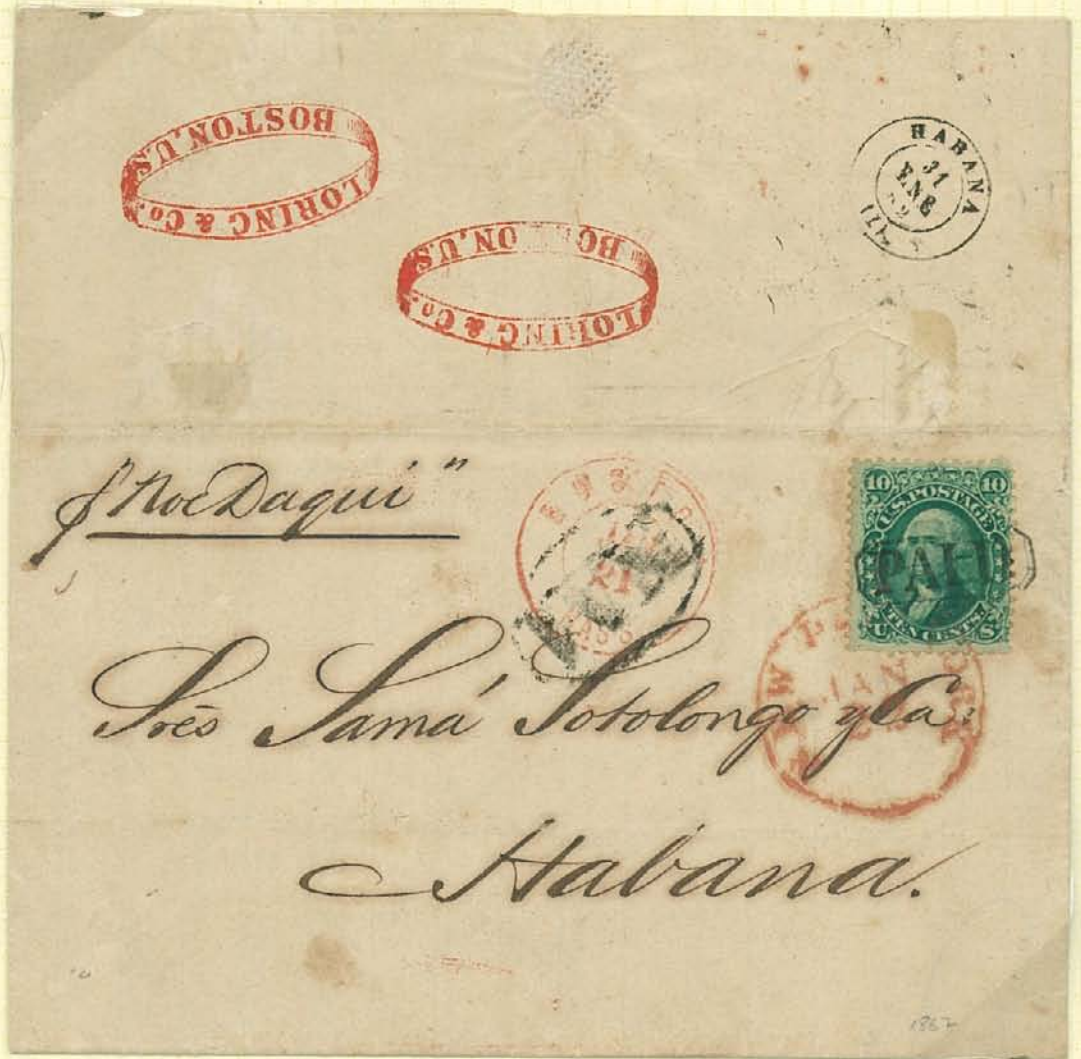 LORING & Co.
BOSTON, U.S.
LORING & Co.
BOSTON, U.S.
HABANA
31
ENE
"Roe Daqui"
21
MASS
10 10
U.S. POSTAGE
PAID
TEN CENTS
U S
NEW YORK
JAN
Sres Samá Sotolongo y Ca.
Habana.
1867